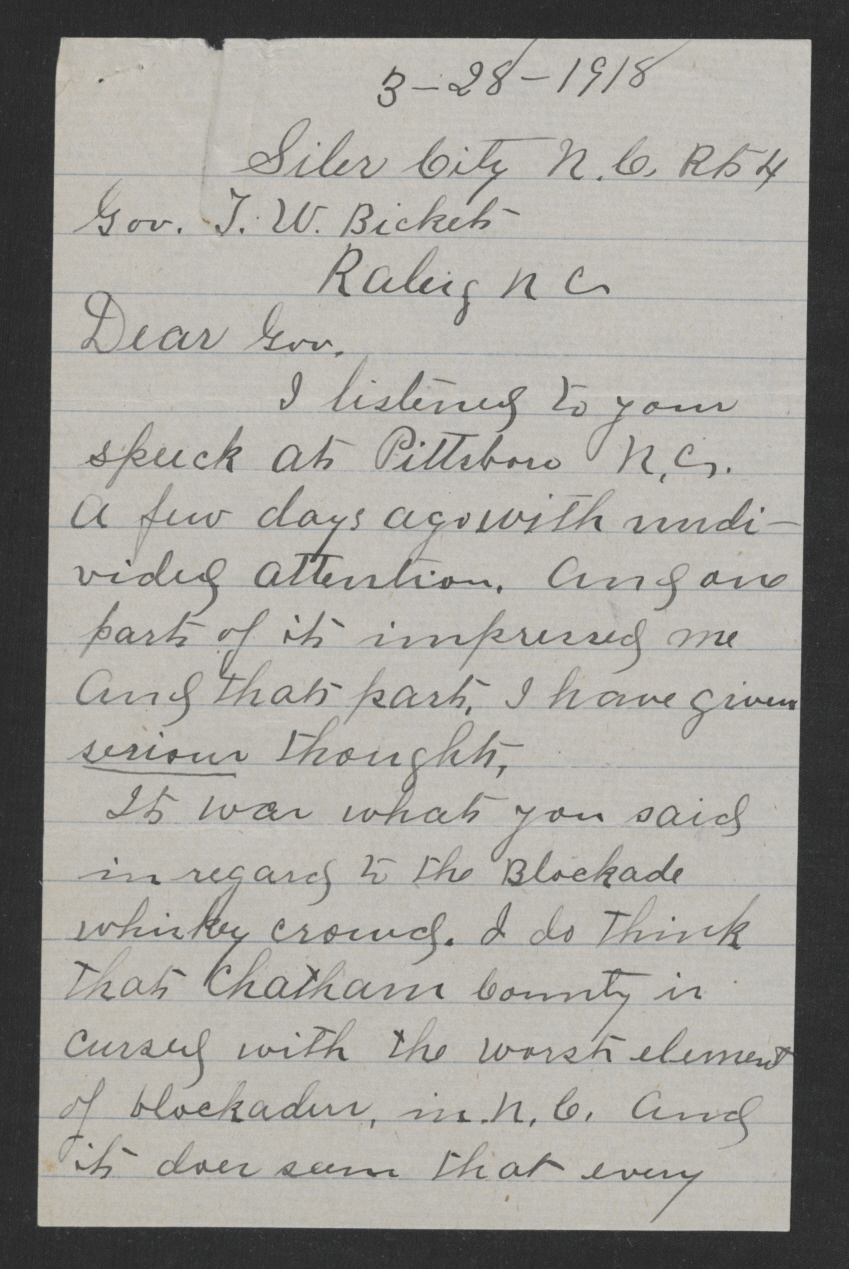 3-28-1918
Siler City N.C. Rt 4
Gov. T. W. Bickett
Raleig N C.
Dear Gov.
I listened to your
speeck at Pittsboro N.C.
a few days ago with undi-
vided attention. And one
part of it impressed me
And that part, I have given
serious thought,
It was what you said
in regard to the Blockade
whiskey crowd. I do think
that Chatham County is
cursed with the worst element
of blockaders, in N.C. And
it does seem that every